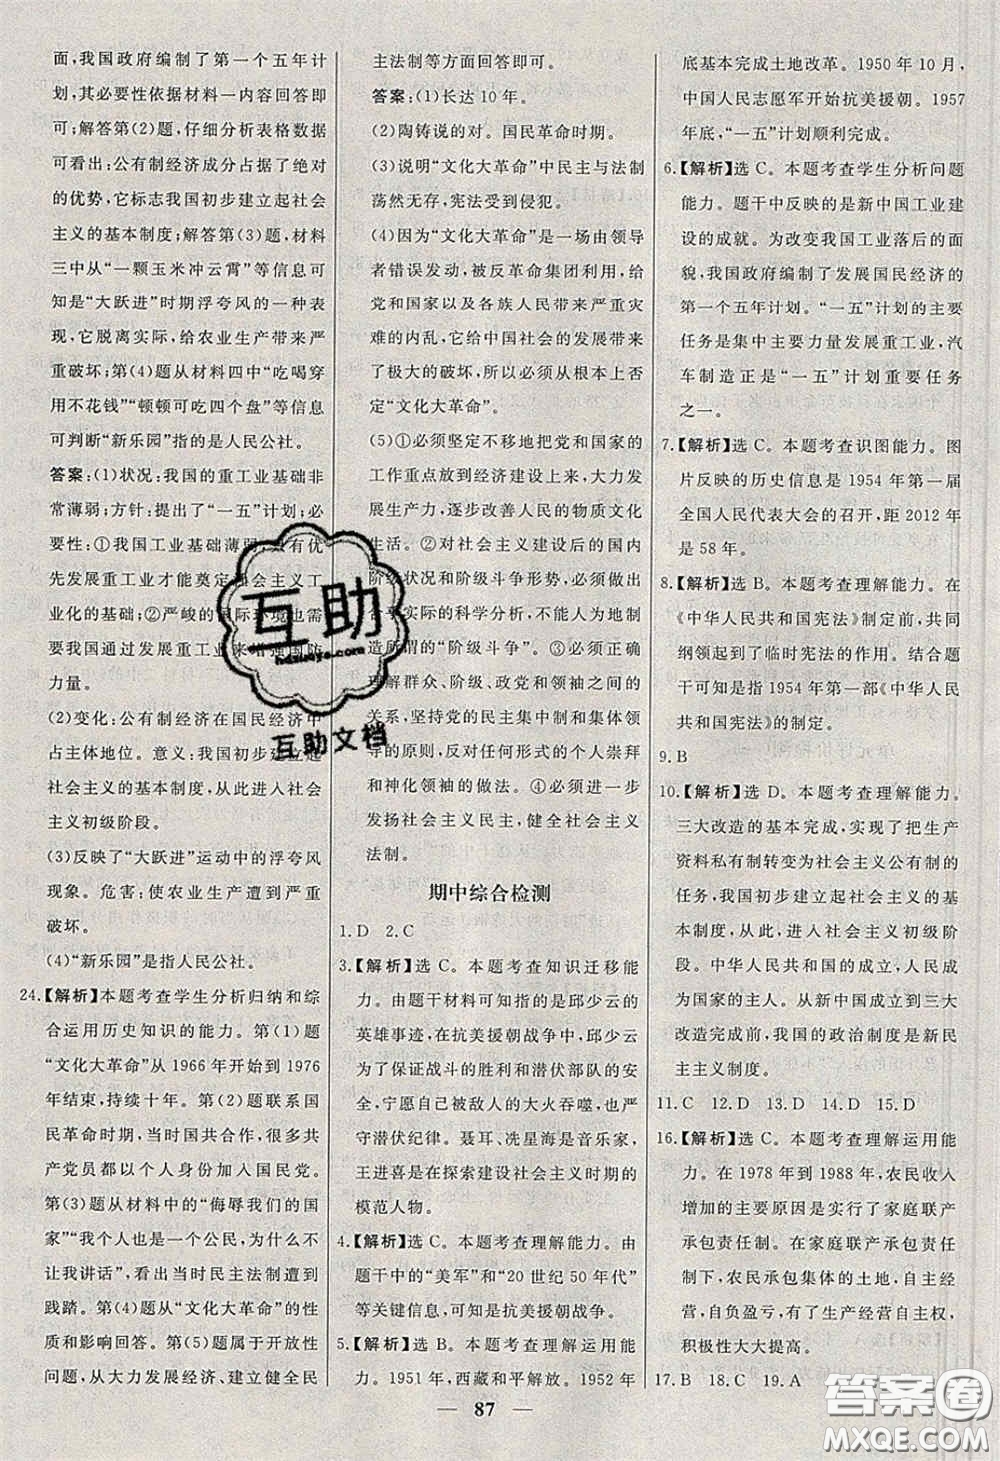 面,我国政府编制了第一个五年计
划,其必要性依据材料一内容回答即
可;解答第(2)题,仔细分析表格数据
可看出:公有制经济成分占据了绝对
的优势,它标志我国初步建立起社会
主义的基本制度;解答第(3)题,材料
三中从“一颗玉米冲云霄”等信息可
知是“大跃进”时期浮夸风的一种表
现,它脱离实际,给农业生产带来严
重破坏;第(4)题从材料四中“吃喝穿
用不花钱”“顿顿可吃四个盘”等信息
可判断“新乐园”指的是人民公社。
答案:(1)状况:我国的重工业基础非
常薄弱;方针:提出了“一五”计划;必
要性:①我国工业基础薄弱,只有优
先发展重工业才能奠定社会主义工
业化的基础;②严峻的国际环境也需
要我国通过发展重工业来增强国防
力量。
(2)变化:公有制经济在国民经济中
占主体地位。意义:我国初步建立起
社会主义的基本制度,从此进入社会
主义初级阶段。
(3)反映了“大跃进”运动中的浮夸风
现象。危害:使农业生产遭到严重
破坏。
(4)“新乐园”是指人民公社。
24.【解析】本题考查学生分析归纳和综
合运用历史知识的能力。第(1)题
“文化大革命”从 1966 年开始到 1976
年结束,持续十年。第(2)题联系国
民革命时期,当时国共合作,很多共
产党员都以个人身份加入国民党。
第(3)题从材料中的“侮辱我们的国
家”“我个人也是一个公民,为什么不
让我讲话”,看出当时民主法制遭到
践踏。第(4)题从“文化大革命”的性
质和影响回答。第(5)题属于开放性
问题,从大力发展经济、建立健全民
主法制等方面回答即可。
答案:(1)长达 10 年。
(2)陶铸说的对。国民革命时期。
(3)说明“文化大革命”中民主与法制
荡然无存,宪法受到侵犯。
(4)因为“文化大革命”是一场由领导
者错误发动,被反革命集团利用,给
党和国家以及各族人民带来严重灾
难的内乱,它给中国社会的发展带来
了极大的破坏,所以必须从根本上否
定“文化大革命”。
(5)①必须坚定不移地把党和国家的
工作重点放到经济建设上来,大力发
展生产力,逐步改善人民的物质文化
生活。②对社会主义建设后的国内
阶级状况和阶级斗争形势,必须做出
合乎实际的科学分析,决不能人为制
造所谓的“阶级斗争”。③必须正确
理解群众、阶级、政党和领袖之间的
关系,坚持党的民主集中制和集体领
导的原则,反对任何形式的个人崇拜
和神化领袖的做法。④必须进一步
发扬社会主义民主,健全社会主义
法制。
期中综合检测
1.D 2.C
3.【解析】选 C。本题考查知识迁移能
力。由题干材料可知指的是邱少云的
英雄事迹,在抗美援朝战争中,邱少云
为了保证战斗的胜利和潜伏部队的安
全,宁愿自己被敌人的大火吞噬,也严
守潜伏纪律。聂耳、冼星海是音乐家,
王进喜是在探索建设社会主义时期的
模范人物。
4.【解析】选 C。本题考查理解能力。由
题干中的“美军”和“20 世纪 50 年代”
等关键信息,可知是抗美援朝战争。
5.【解析】选 B。本题考查理解运用能
力。1951 年,西藏和平解放。1952 年
底基本完成土地改革。1950 年 10 月,
中国人民志愿军开始抗美援朝。1957
年底,“一五”计划顺利完成。
6.【解析】选 C。本题考查学生分析问题
能力。题干中反映的是新中国工业建
设的成就。为改变我国工业落后的面
貌,我国政府编制了发展国民经济的
第一个五年计划。“一五”计划的主要
任务是集中主要力量发展重工业,汽
车制造正是“一五”计划重要任务
之一。
7.【解析】选 C。本题考查识图能力。图
片反映的历史信息是 1954 年第一届
全国人民代表大会的召开,距 2012 年
是 58 年。
8.【解析】选 B。本题考查理解能力。在
《中华人民共和国宪法》制定前,共同
纲领起到了临时宪法的作用。结合题
干可知是指 1954 年第一部《中华人民
共和国宪法》的制定。
9.B
10.【解析】选 D。本题考查理解能力。
三大改造的基本完成,实现了把生产
资料私有制转变为社会主义公有制的
任务,我国初步建立起社会主义的基
本制度,进入社会主义初级阶
段。中华人民共和国的成立,人民成
为国家的主人。从新中国成立到三大
改造完成前,我国的政治制度是新民
主主义制度。
11.C 12.D 13.C 14.D 15.D
16.【解析】选 C。本题考查理解运用能
力。在 1978 年到 1988 年,农民收入
增加的主要原因是实行了家庭联产
承包责任制。实行家庭联产承包责任
制下,农民承包集体的土地,自主经
营,自负盈亏,有了生产经营自主权,
积极性大大提高。
17.B 18.C 19.A
87
互助
hdzuoye.com
互助文档
答案圈
MXQE.COM